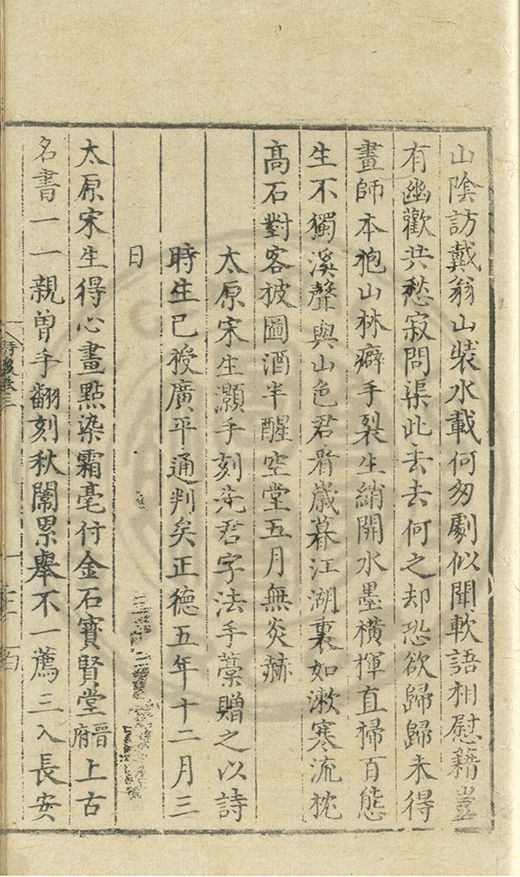 山陰訪戴翁山裝水載何匆劇似聞軟語相慰籍豈
有幽歡共愁寂問渠此去去何之却恐欲歸歸未得
畫師本抱山林癖手裂生綃開水墨橫揮直掃百態
生不獨溪聲與山色君看歲暮江湖裏如漱寒流枕
高石對客披圖酒半醒空堂五月無炎赫
太原宋生灝手刻先君字法手藁贈之以詩
時生已授廣平通判矣正德五年十二月三
日
太原宋生得心畫點染霜毫付金石寶賢堂晉府上古
名書一一親曾手翻刻秋闈累舉不一薦三入長安